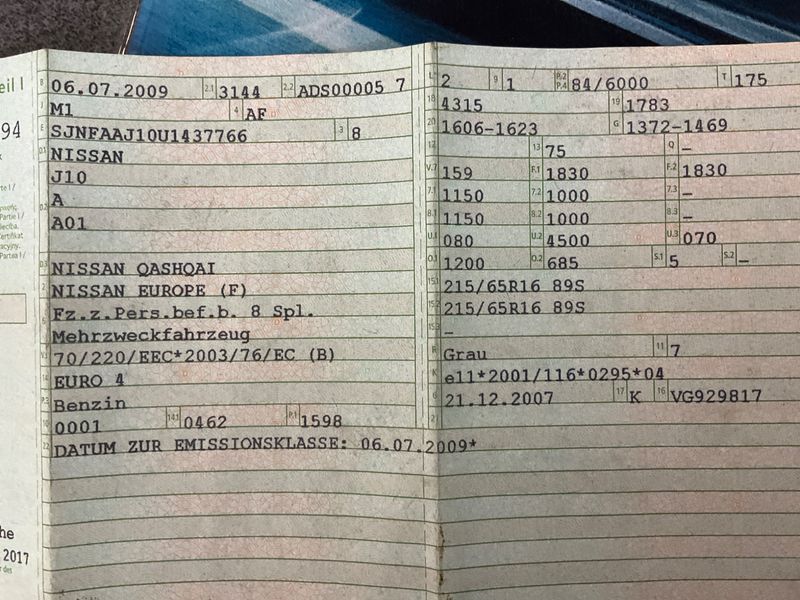 eil I
B 06.07.2009 2.1 3144 2.2 ADS00005 7
J M1 4 AF
E SJNFAAJ10U1437766 3 8
D.1 NISSAN
J10
D.2 A
A01
D.3 NISSAN QASHQAI
2 NISSAN EUROPE (F)
5 Fz.z.Pers.bef.b. 8 Spl.
Mehrzweckfahrzeug
V.9 70/220/EEC*2003/76/EC (B)
14 EURO 4
P.3 Benzin
10 0001 14.1 0462 P.1 1598
22 DATUM ZUR EMISSIONSKLASSE: 06.07.2009*
L 2 9 1 P.2 P.4 84/6000 T 175
18 4315 19 1783
20 1606-1623 G 1372-1469
12 13 75 Q –
V.7 159 F.1 1830 F.2 1830
7.1 1150 7.2 1000 7.3 –
8.1 1150 8.2 1000 8.3 –
U.1 080 U.2 4500 U.3 070
O.1 1200 O.2 685 S.1 5 S.2 –
15.1 215/65R16 89S
15.2 215/65R16 89S
15.3 –
R Grau 11 7
K e11*2001/116*0295*04
6 21.12.2007 17 K 16 VG929817
21
94
he
2017